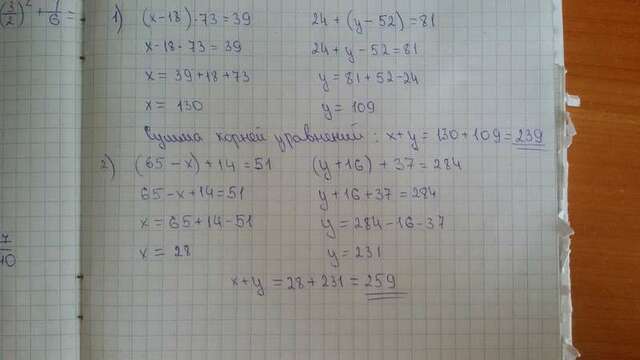 (3/2)² + 1/6 =
1) (x-18)-73=39 24+(y-52)=81
x-18-73=39 24+y-52=81
x=39+18+73 y=81+52-24
x=130 y=109
Сумма корней уравнений: x+y=130+109=239
2) (65-x)+14=51 (y+16)+37=284
65-x+14=51 y+16+37=284
x=65+14-51 y=284-16-37
x=28 y=231
x+y=28+231=259
7/10